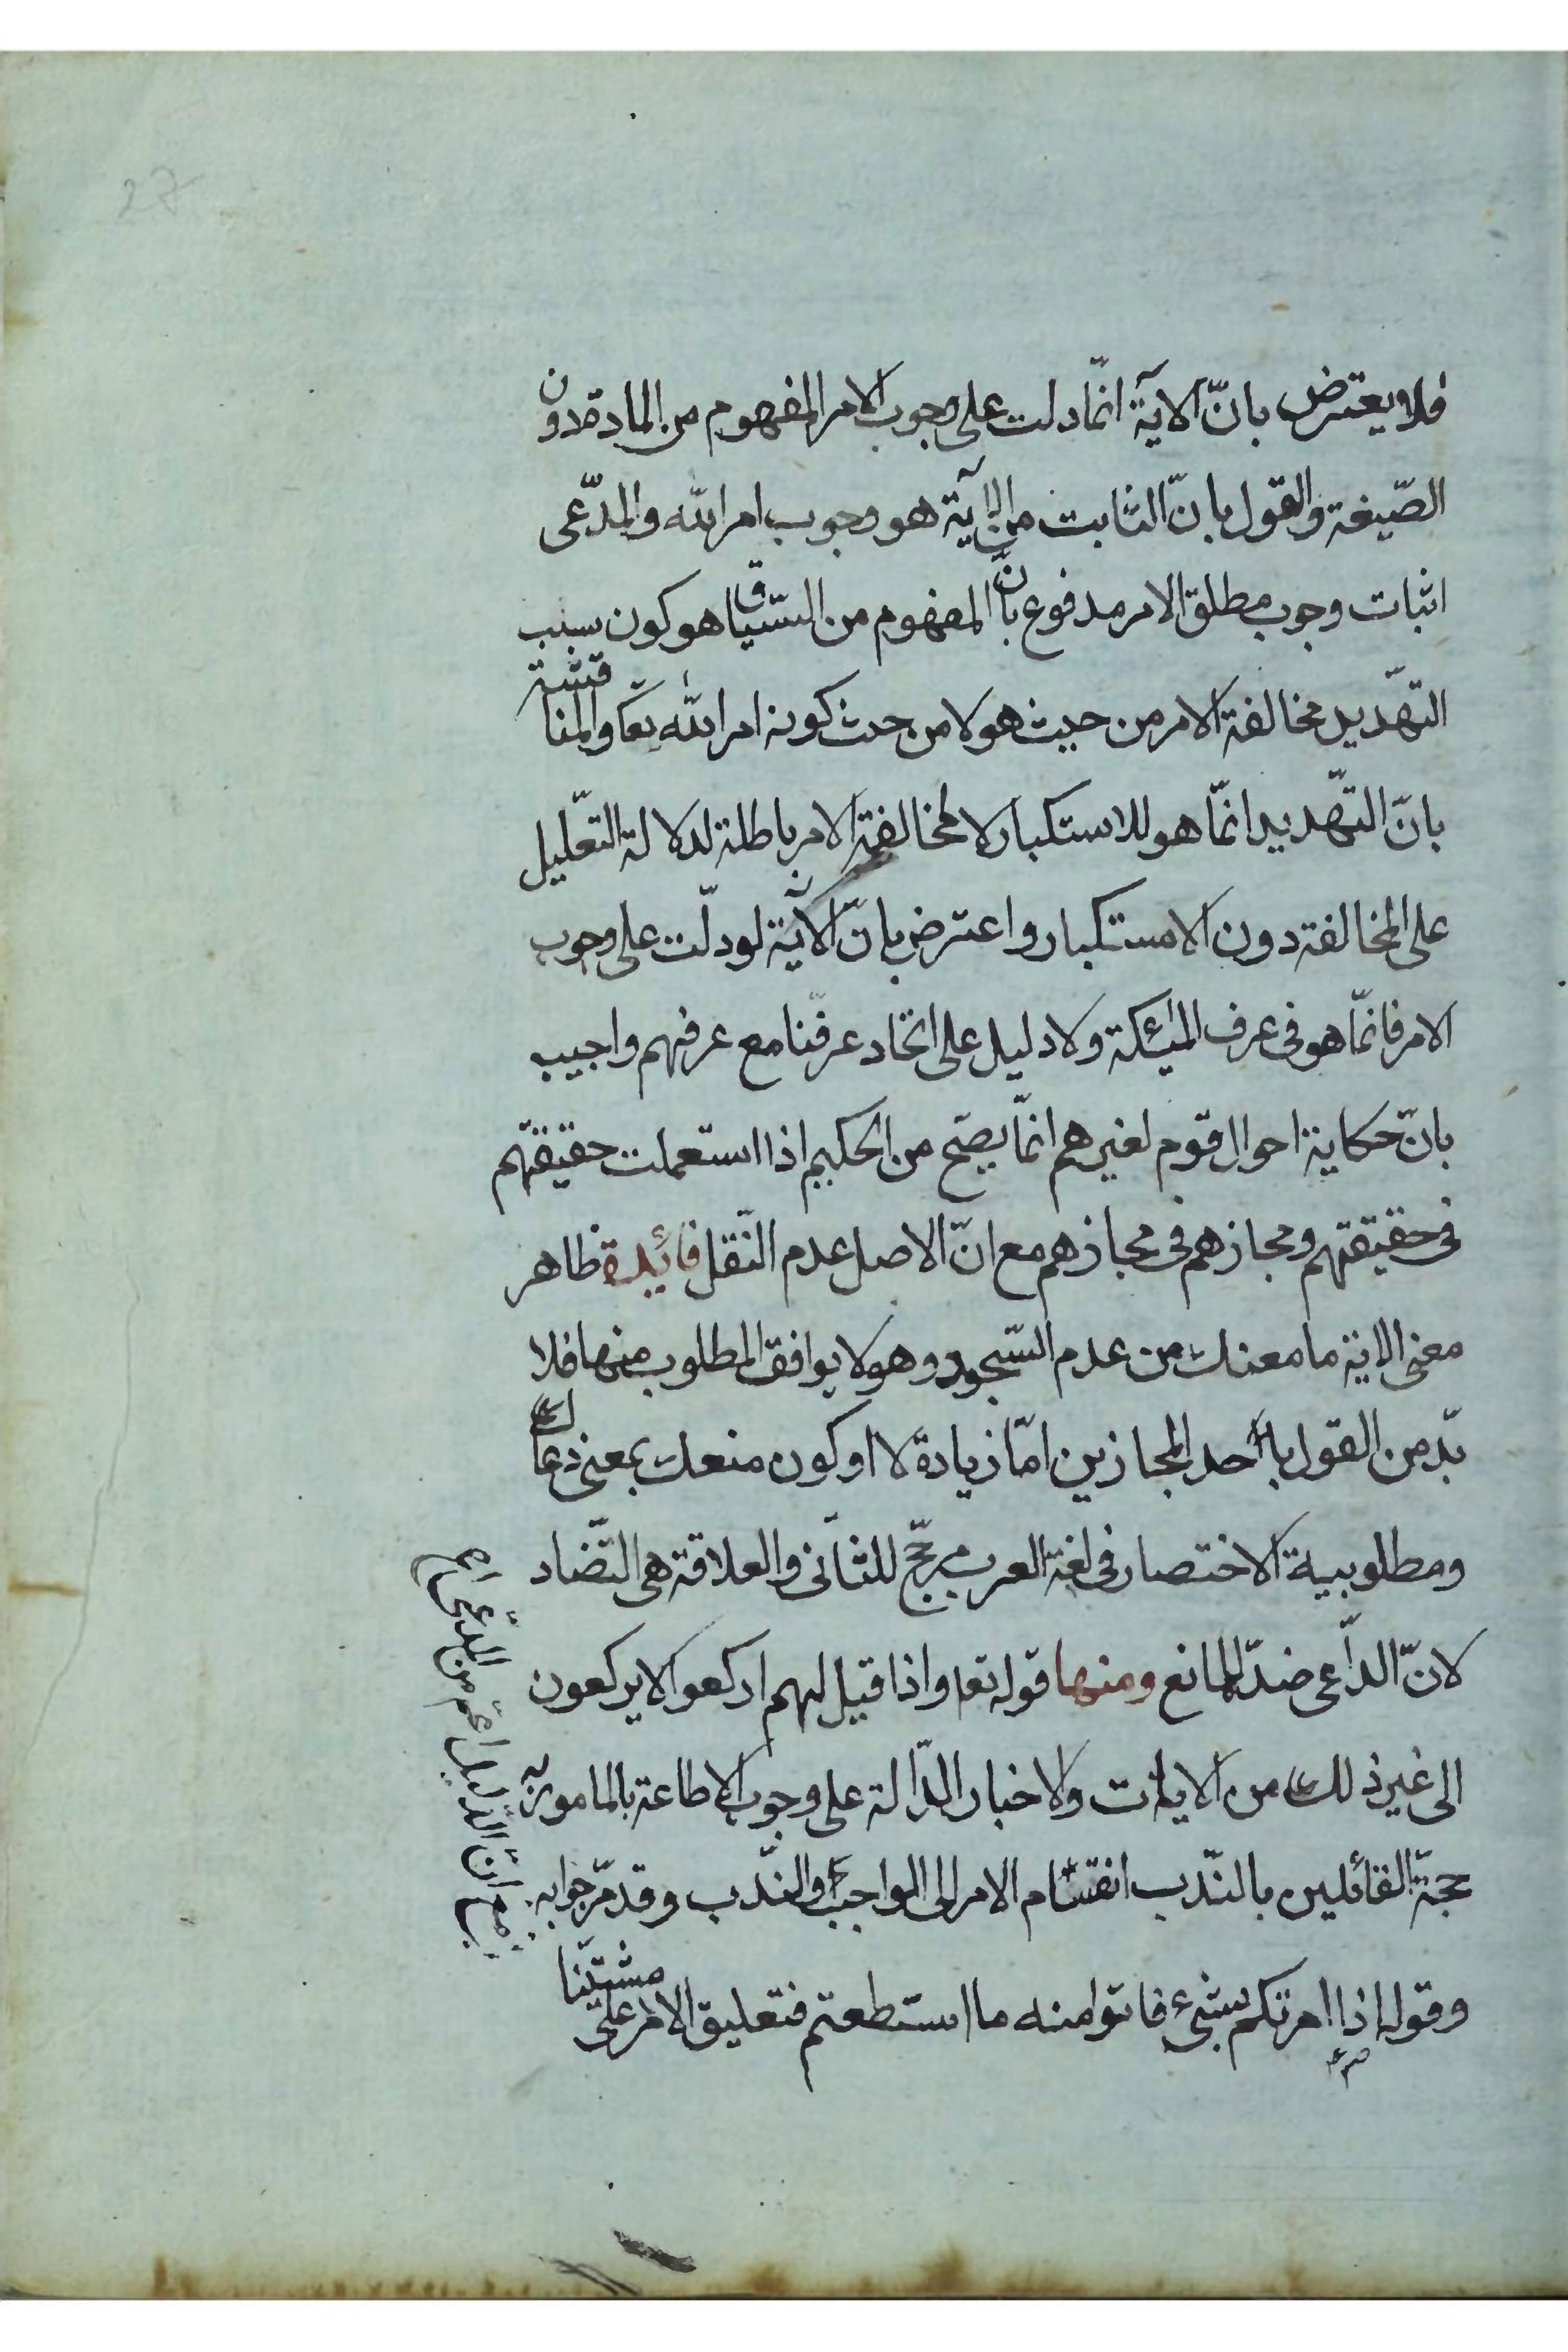 فلا يعترض بانّ الآية انّما دلت على وجوب الامر المفهوم من المادة دون
الصّيغة والقول بانّ الثابت من الآية هو وجوب امر الله والمدّعى
اثبات وجوب مطلق الامر مدفوع بانّ المفهوم من السّياق هو كون سبب
التهّديد مخالفة الامر من حيث هو لا من حيث كونه امر الله تعا والمناقشة
بانّ التهّديد انّما هو للاستكبار لا لمخالفة الامر باطلة لدلالة التعّليل
على المخالفة دون الاستكبار واعترض بانّ الآية لو دلّت على وجوب
الامر فانّما هو فى عرف الملئكة ولا دليل على اتحاد عرفنا مع عرفهم واجيب
بانّ حكاية احوال قوم لغيرهم انّما يصّح من الحكيم اذا استعملت حقيقتهم
فى حقيقتهم ومجازهم فى مجازهم مع انّ الاصل عدم النّقل فائدة ظاهر
معنى الاية ما معنك من عدم السّجود وهو لا يوافق المطلوب منها فلا
بّد من القول باحد المجازين امّا زيادة لا او كون منعك بمعنى دعاك
ومطلوبية الاختصار فى لغة العرب مرجّح للثّانى والعلاقة هى التّضاد
لانّ الدّاعى ضدّ للمانع ومنها قوله تعا واذا قيل لهم اركعوا لا يركعون
الى غير ذلك من الايات والاخبار الدّالة على وجوب الاطاعة بالمامور به
حجّة القائلين بالنّدب انقسام الامر الى الواجب والنّدب وقد مّر جوابه
وقوله اذا امرتكم بشىء فاتوا منه ما استطعتم فتعليق الامر على مشيّتنا
مع انّ الدّليل اعّم من المدّعى